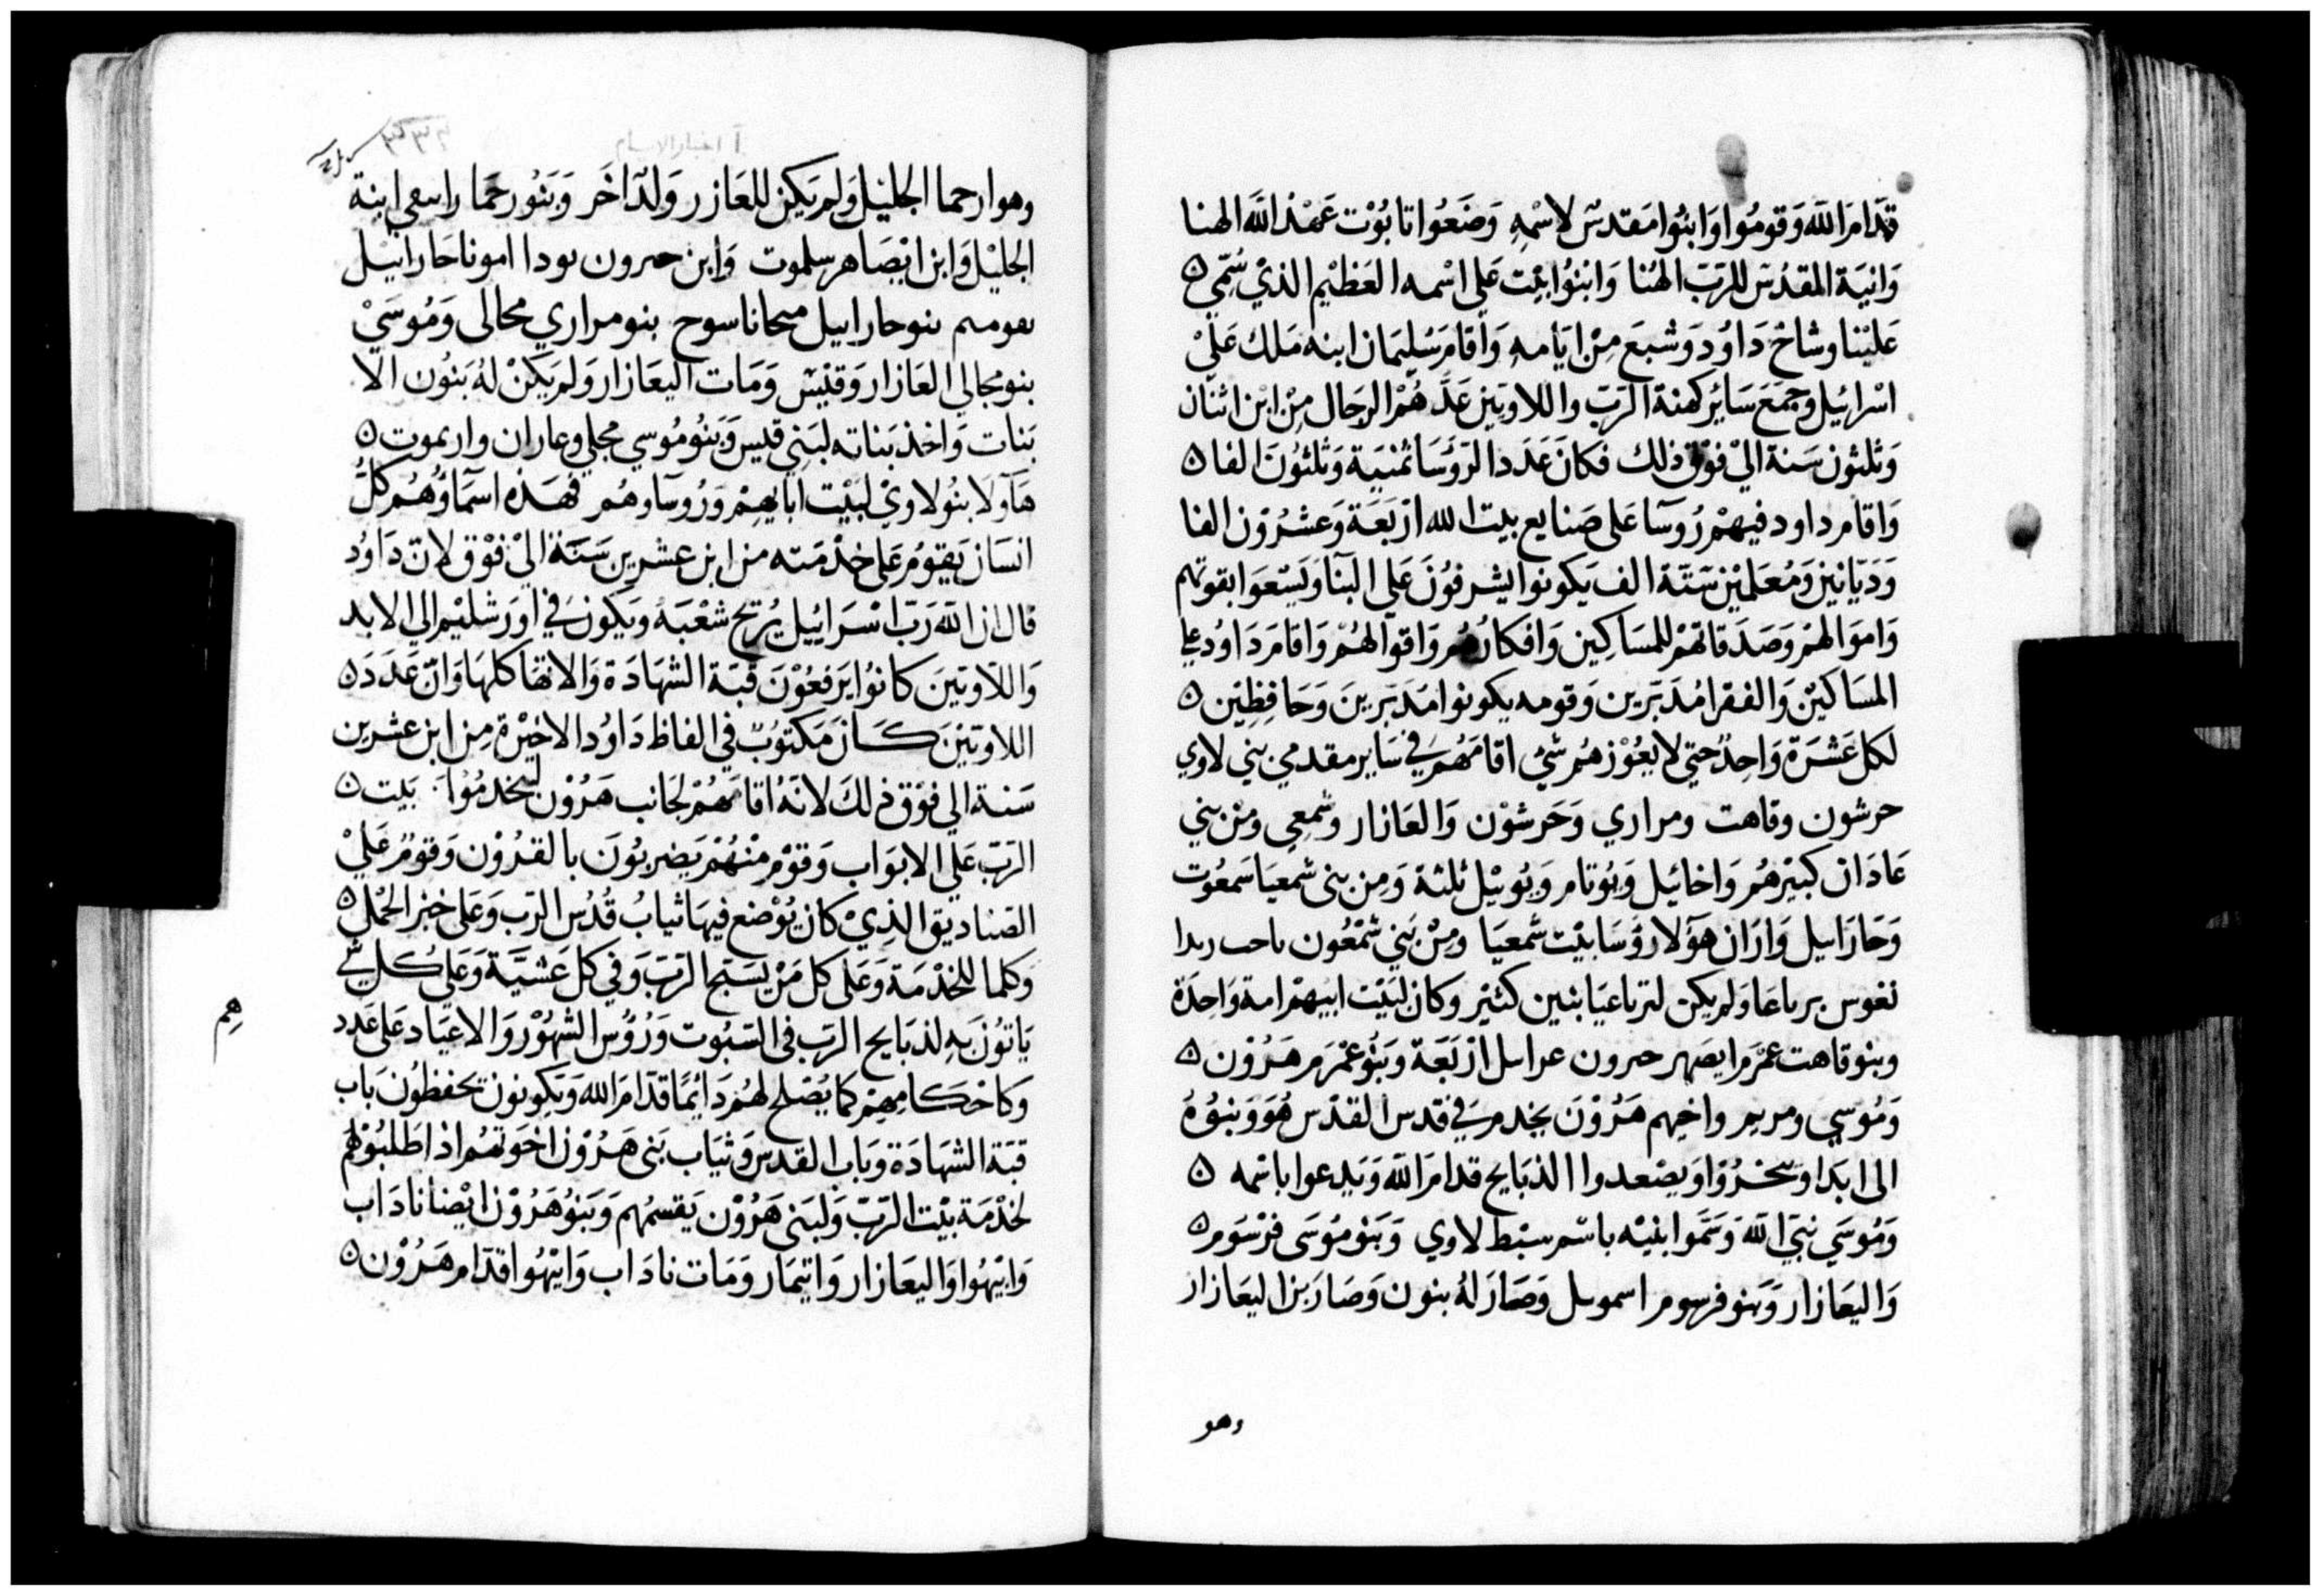 قدام الله وقوموا وابنوا مقدس لاسمه وضعوا تابوت عهد الله الهنا
وانية المقدس للرب الهنا وابنوا بيت علي اسمه العظيم الذي سمي
علينا وشاخ داود وشبع من ايامه واقام سليمان ابنه ملك علي
اسرائيل وجمع سائر كهنة الرب واللاويين عدهم الرجال من ابن اثنان
وثلثون سنة الي فوق ذلك فكان عدد الرؤسا ثمنية وثلثون الفا
واقام داود فيهم رؤسا على صنايع بيت الله اربعة وعشرون الفا
وديانين ومعلمين ستة الف يكونوا يشرفون على البنا ويسعوا بقوتهم
واموالهم وصدقاتهم للمساكين وافكارهم واقوالهم واقام داود علي
المساكين والفقرا مدبرين وقومه يكونوا مدبرين وحافظين
لكل عشرة واحد حتي لا يعوزهم شي اقامهم في ساير مقدمي بني لاوي
حرشون وقاهت ومراري وحرشون والعازار وشمعي ومن بني
عادان كبيرهم واخائيل ويوتام ويوئيل ثلثة ومن بنى شمعيا سمعوت
وحاراىيل واران هؤلا رؤسا بيت شمعيا ومن بني شمعون
ولم يكن لترباعيا بنين كثير وكان لبيت ابيهم امة واحدة
وبنو قاهت عمرم ايصهر حبرون اربعة وبنو عمرم هرون
وموسي ومريم واخيهم هرون يخدم في قدس القدس هو وبنوه
الى ابدا ويبخروا ويصعدوا الذبايح قدام الله ويدعوا باسمه
وموسي نبي الله وسموا ابنيه باسم سبط لاوي وبنو موسى فرسوم
واليعازار وبنو فرسوم اسموىل وصار له بنون وصار بن اليعازار
وهو
ا اخبار الايام
وهو ارحما الجليل ولم يكن للعازر ولد اخر وبنو رحما ابنة
الجليل وابن ايصاهر سلموت وابن حبرون يودا امونا حارائيل
بنو حاراييل ميحانا سوح بنو مراري محالى وموسي
بنو محالي العازار وقيس ومات اليعازار ولم يكن له بنون الا
بنات واخذ بناته لبني قيس وبنو موسي محلي وعاران واريموت
هآولا بنو لاوي لبيت ابايهم وروساوهم فهذه اسماؤهم كل
انسان يقوم على خدمته من ابن عشرين سنة الي فوق لان داود
قال ان الله رب اسرائيل يريح شعبه ويكون في اورشليم الي الابد
واللاويين كانوا يرفعون قبة الشهادة والاتها كلها وان عدد
اللاويين كان مكتوب في الفاظ داود الاخيرة من ابن عشرين
سنة الي فوق ذلك لانه اقامهم لجانب هرون ليخدموا بيت
الرب علي الابواب وقوم منهم يضربون بالقرون وقوم علي
الصناديق الذي كان يوضع فيها ثياب قدس الرب وعلى خبز الحمل
وكلما للخدمة وعلى كل من يسبح الرب وفي كل عشية وعلي كل شي
ياتون به لذبايح الرب فى السبوت ورؤس الشهور والاعياد على عدد
هم
وكاحكامهم كما يصلح لهم دائما قدام الله ويكونون يحفظون باب
قبة الشهادة وباب القدس وثياب بنى هرون اخوتهم اذا طلبوهم
لخدمة بيت الرب ولبني هرون يقسمهم وبنو هرون ايضا ناداب
وابيهوا واليعازار وايتمار ومات ناداب وابيهوا قدام هرون